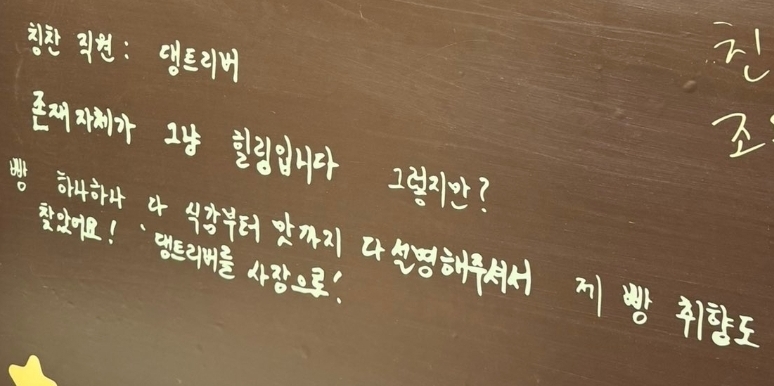 칭찬 직원: 댕트리버
존재 자체가 그냥 힐링입니다 그렇지만?
빵 하나하나 다 식감부터 맛까지 다 설명해주셔서 제 빵 취향도
찾았어요! 댕트리버를 사장으로!
친
조